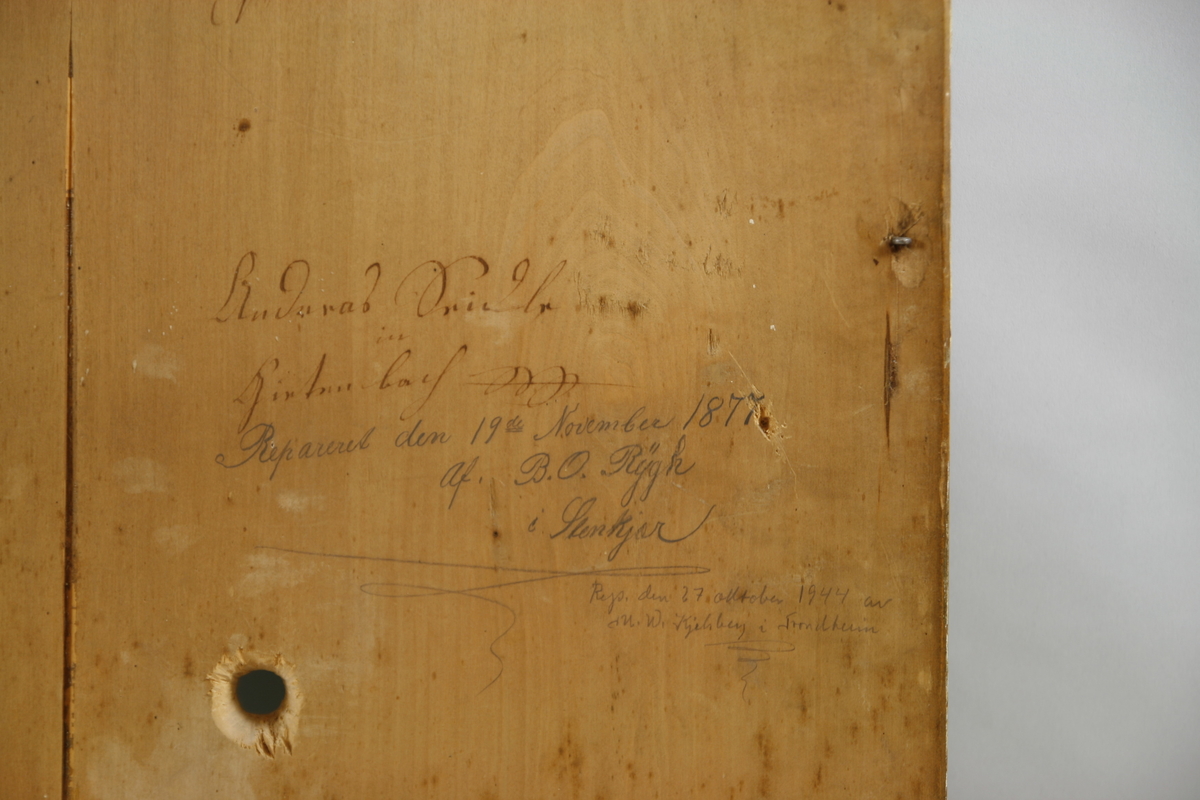 Andreas Seidle
in
Hintenbach
Repareret den 19de November 1877
Af. B.O. Rÿgh
i Stenkjær
Rep. den 27. oktober 1944 av
M. W. Kjelsberg i Trondheim